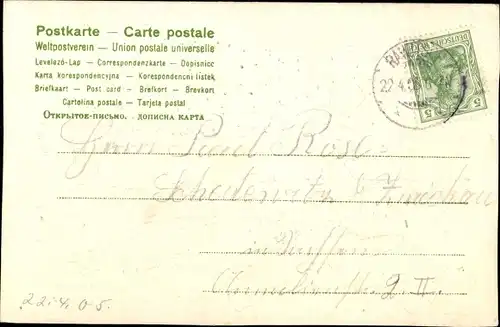 Postkarte — Carte postale
Weltpostverein — Union postale universelle
Levelező-Lap — Correspondenzkarte — Dopisnice
Karta korespondencyjna — Korespondenční lístek
Briefkaart — Post card — Brefkort — Brevkort
Cartolina postale — Tarjeta postal
ОТКРЫТОЕ-ПИСЬМО. — ДОПИСНА КАРТА
DEUTSCHES
5 5
22.4.
Herrn Paul Rose
Schedewitz b Zwickau
in Sachsen
2 II.
22.4.05.